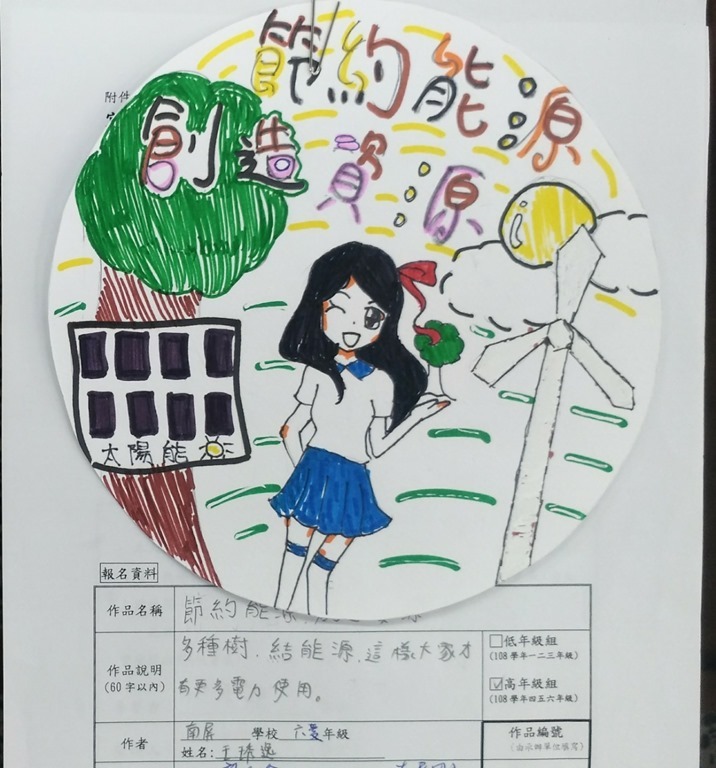 附件
節約能源
創造資源
太陽能
報名資料
作品名稱
節約能源
作品說明
(60字以內)
多種樹、結能源、這樣大家才
有更多電力使用。
□低年級組
(108學年一二三年級)
☑高年級組
(108學年四五六年級)
作者
南屏 學校 六 年級
姓名:王
作品編號
(由承辦單位填寫)